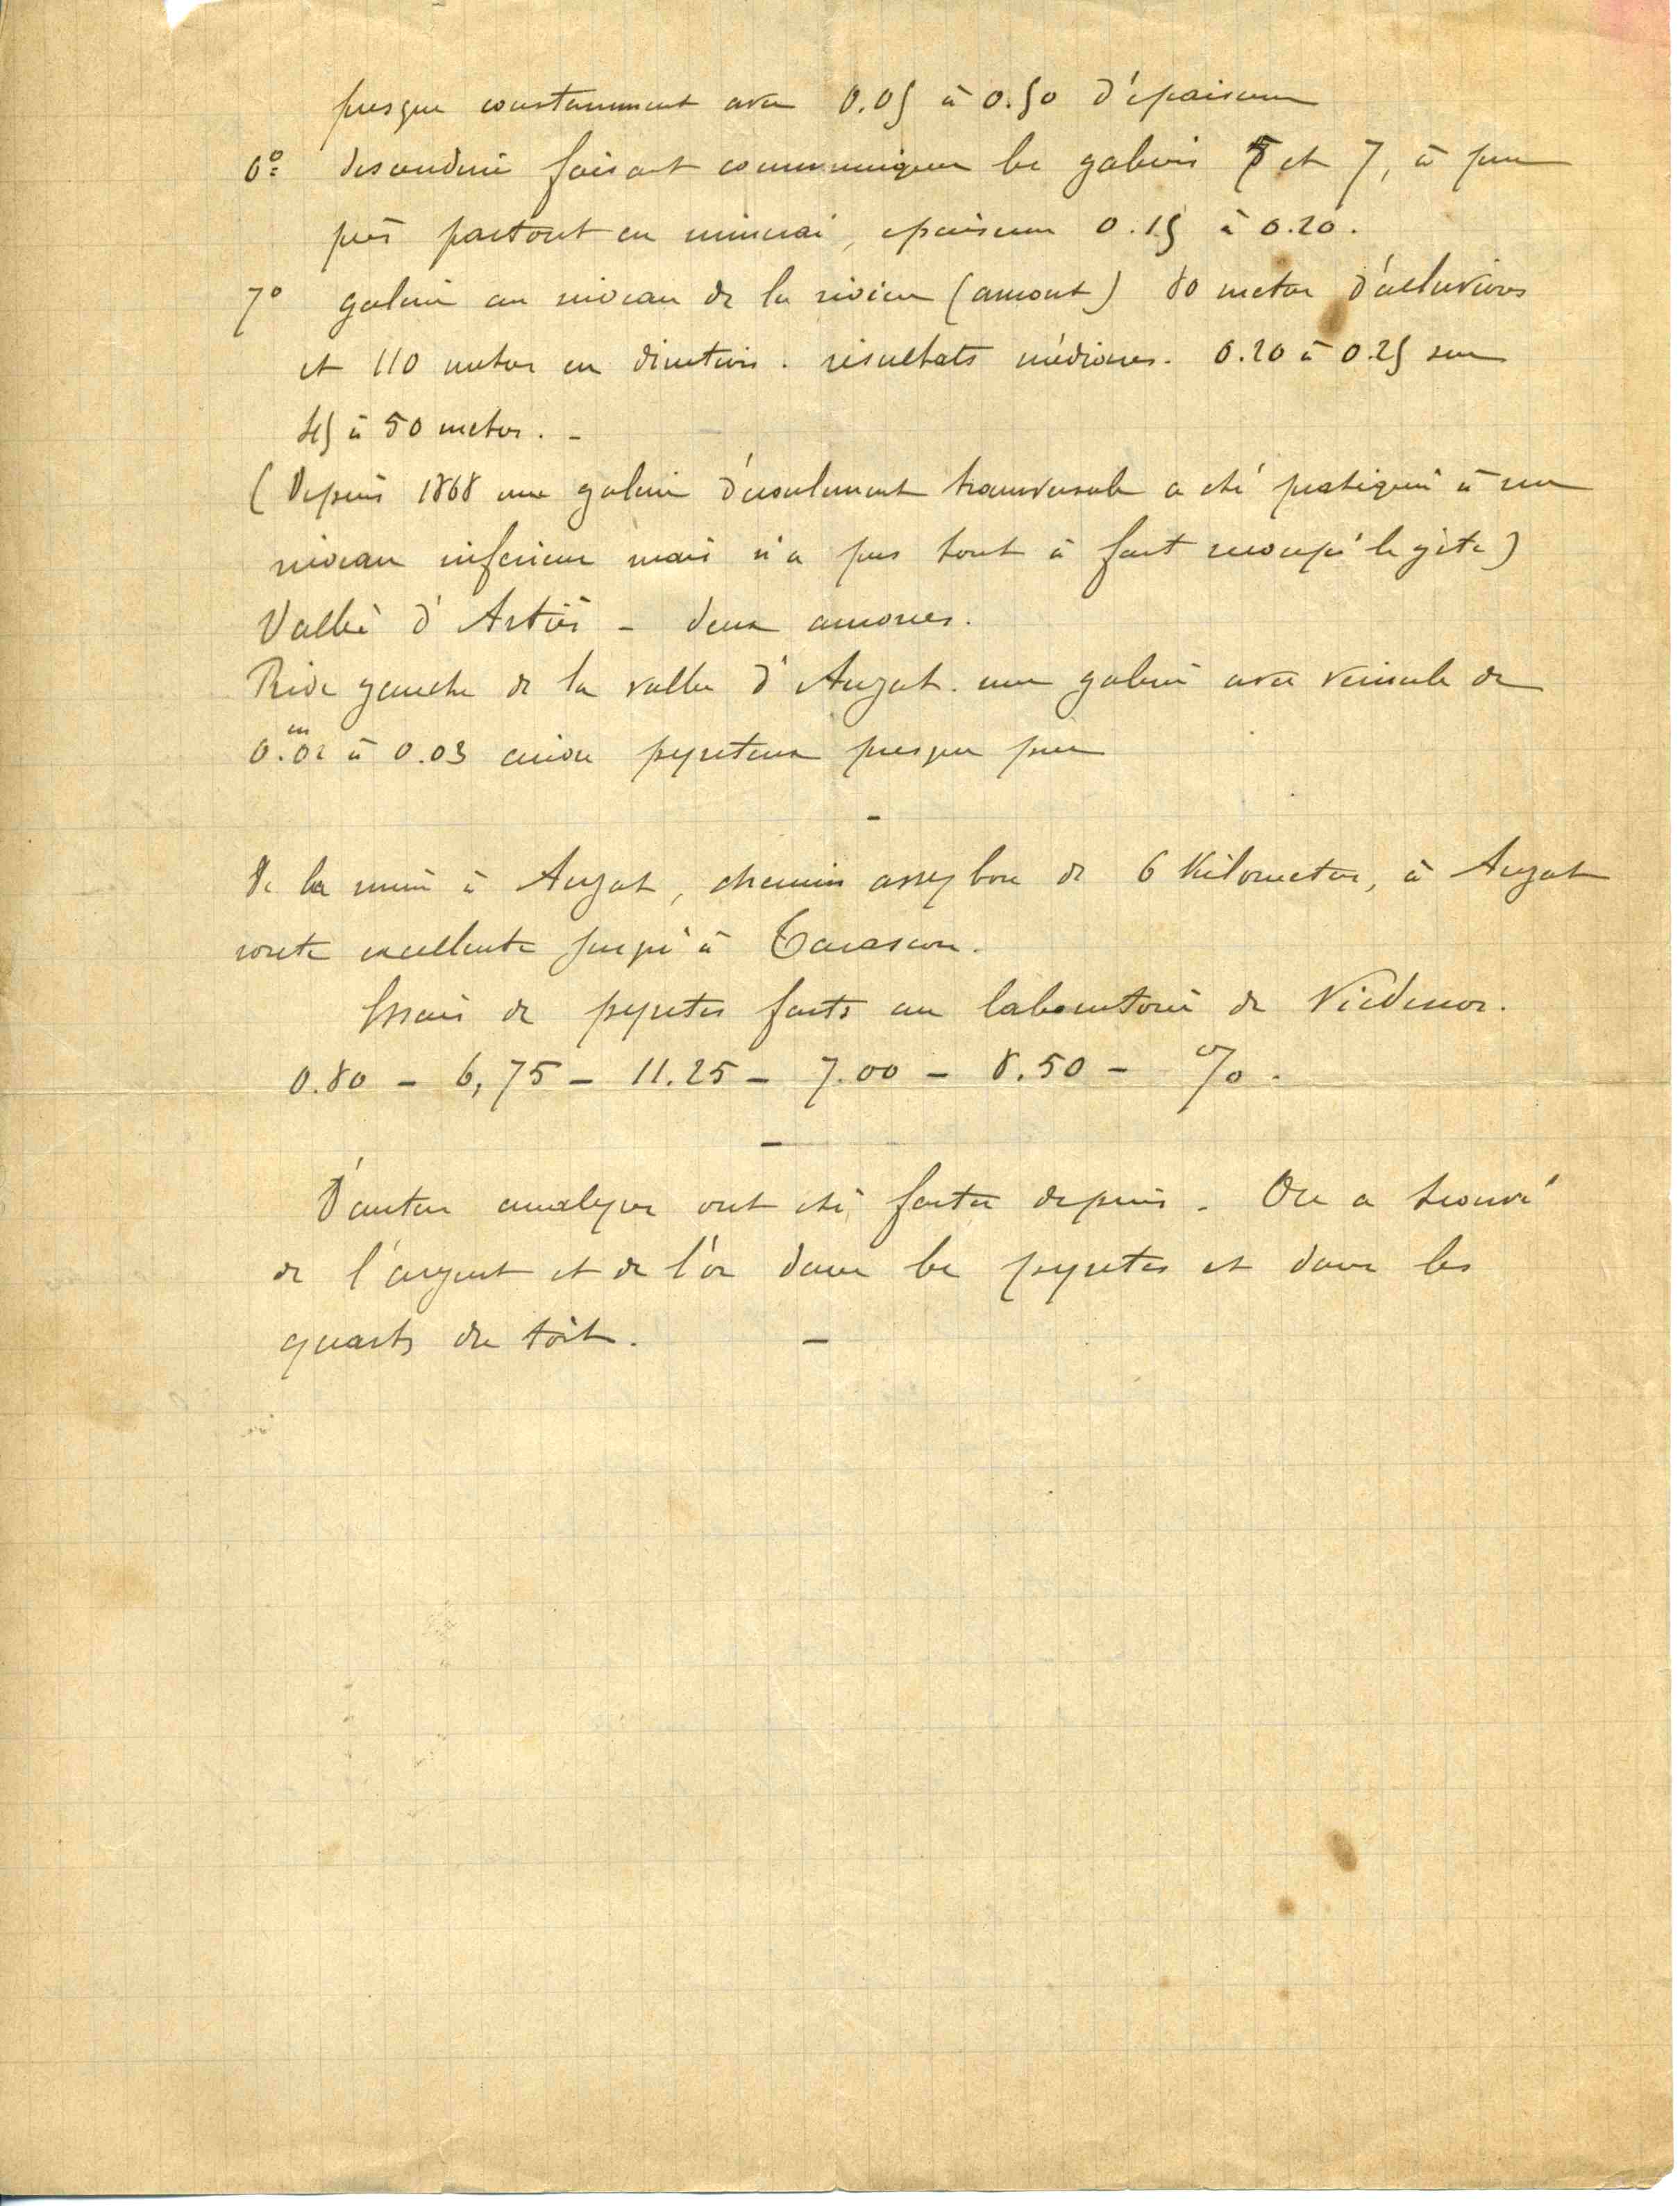 presque constamment avec 0.05 à 0.50 d'épaisseur
6º descenderie faisant communiquer les galeries 5 et 7, à peu
près partout en minerai, epaisseur 0.15 à 0.20.
7º galerie au niveau de la rivière (amont) 80 metres d'alluvions
et 110 metres en direction. résultats médiocres. 0.20 à 0.25 sur
45 à 50 metres. -
(Depuis 1868 une galerie d'écoulement transversale a été pratiquée à un
niveau inferieur mais n'a pas tout à fait recoupé le gite)
Vallée d'Artiès - deux amorces.
Rive gauche de la vallée d'Auzat. une galerie avec veinule de
0.m02 à 0.03 cuivre pyriteux presque pur
-
De la mine à Auzat, chemin assez bon de 6 Kilometres, à Auzat
route excellente jusqu'à Tarascon.
Essais de pyrites faits au laboratoire de Vicdessos.
0.80 - 6,75 - 11.25 - 7.00 - 8.50 - %.
-
D'autres analyses ont été faites depuis. On a trouvé
de l'argent et de l'or dans les pyrites et dans les
quartz du toit. -